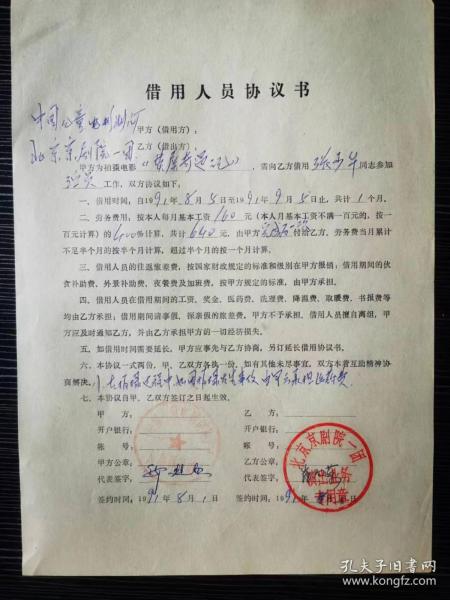 借用人员协议书
中国儿童电影制片厂 甲方（借用方）：
北京京剧院一团 乙方（借出方）：
甲方为拍摄电影《 》，需向乙方借用 同志参加
工作，双方协议如下：
一、借用时间，自1991年8月5日至1991年9月5日止，共计1个月。
二、劳务费用，按本人每月基本工资160元（本人月基本工资不满一百元的，按一
百元计算）的400%计算，共计640元，由甲方 付给乙方，劳务费当月累计
不足半个月的按半个月计算，超过半个月的按一个月计算。
三、借用人员的往返旅差费，按国家财政规定的标准和级别在甲方报销；借用期间的伙
食补助费、外景补助费、夜餐费及加班费，按甲方规定的标准，由甲方承担。
四、借用人员在借用期间的工资、奖金、医药费、洗理费、降温费、取暖费、书报费等
均由乙方承担；借用期间请事假、探亲假的旅差费，甲方不予承担。借用人员擅自离组，甲方
应及时通知乙方，并由乙方承担甲方的一切经济损失。
五、如借用时间需要延长，甲方应事先与乙方协商，另订延长借用协议书。
六、本协议一式两份，甲、乙双方各执一份，如有其他未尽事宜，双方本着互助精神协
商解决。
七、本协议自甲、乙双方签订之日起生效。
甲 方： 乙 方：
开户银行： 开户银行：
账 号： 账 号：
甲方公章： 乙方公章：
代表签字： 代表签字：
签约时间：1991年8月1日 签约时间：1991年 月 日
北京京剧院一团
专用章
孔夫子旧书网
www.kongfz.com